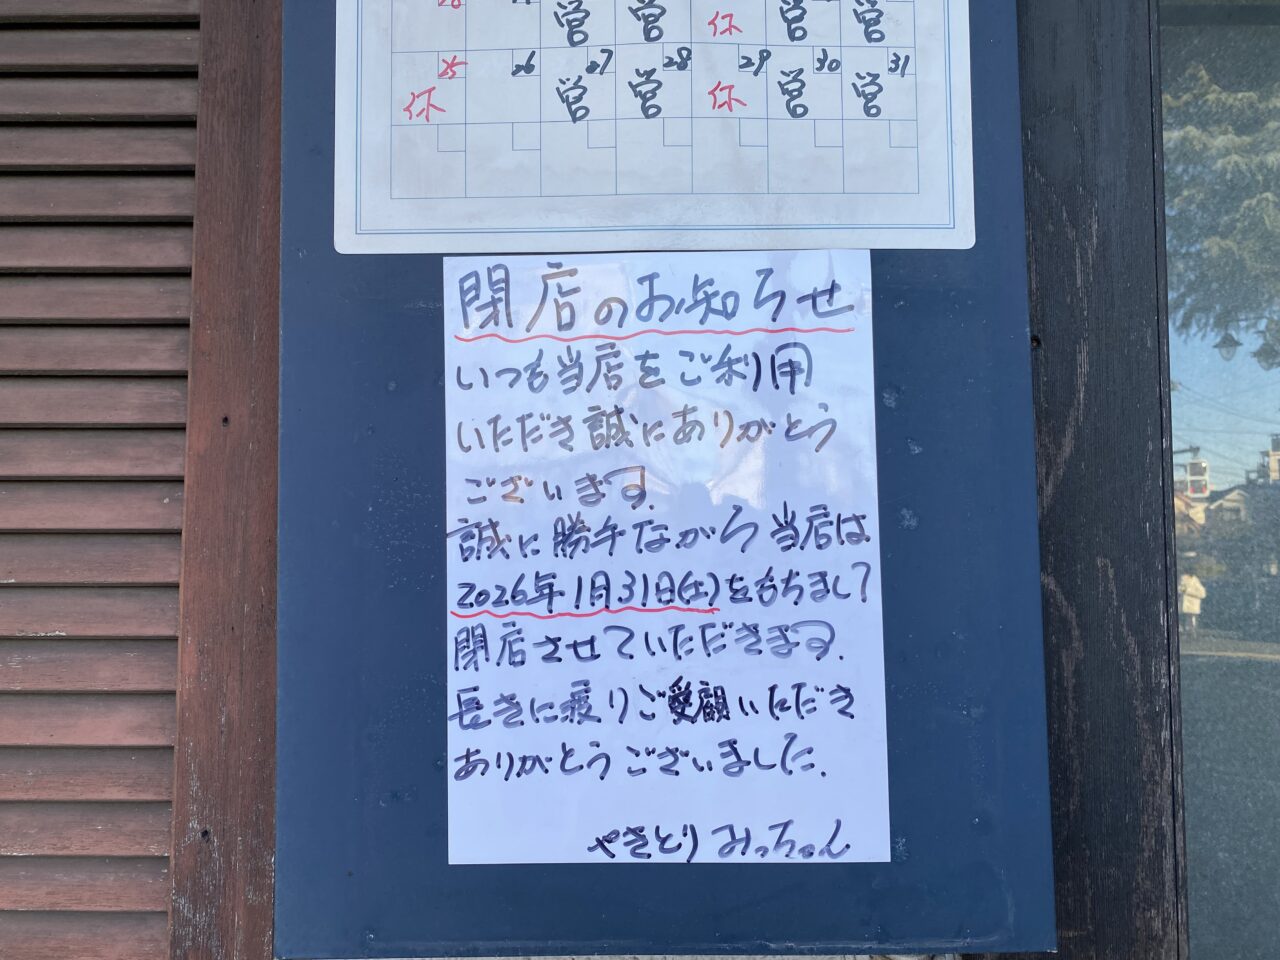 営 営 休 営 営
25 26 27 28 29 30 31
休 営 営 休 営 営
閉店のお知らせ
いつも当店をご利用
いただき誠にありがとう
ございます.
誠に勝手ながら当店は
2026年1月31日(土)をもちまして
閉店させていただきます.
長きに渡りご愛顧いただき
ありがとうございました.
やきとりみっちゃん